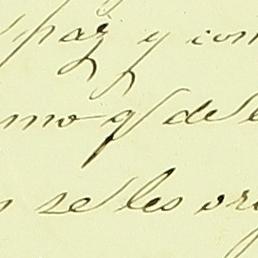 paz y con
mo q de
se les or